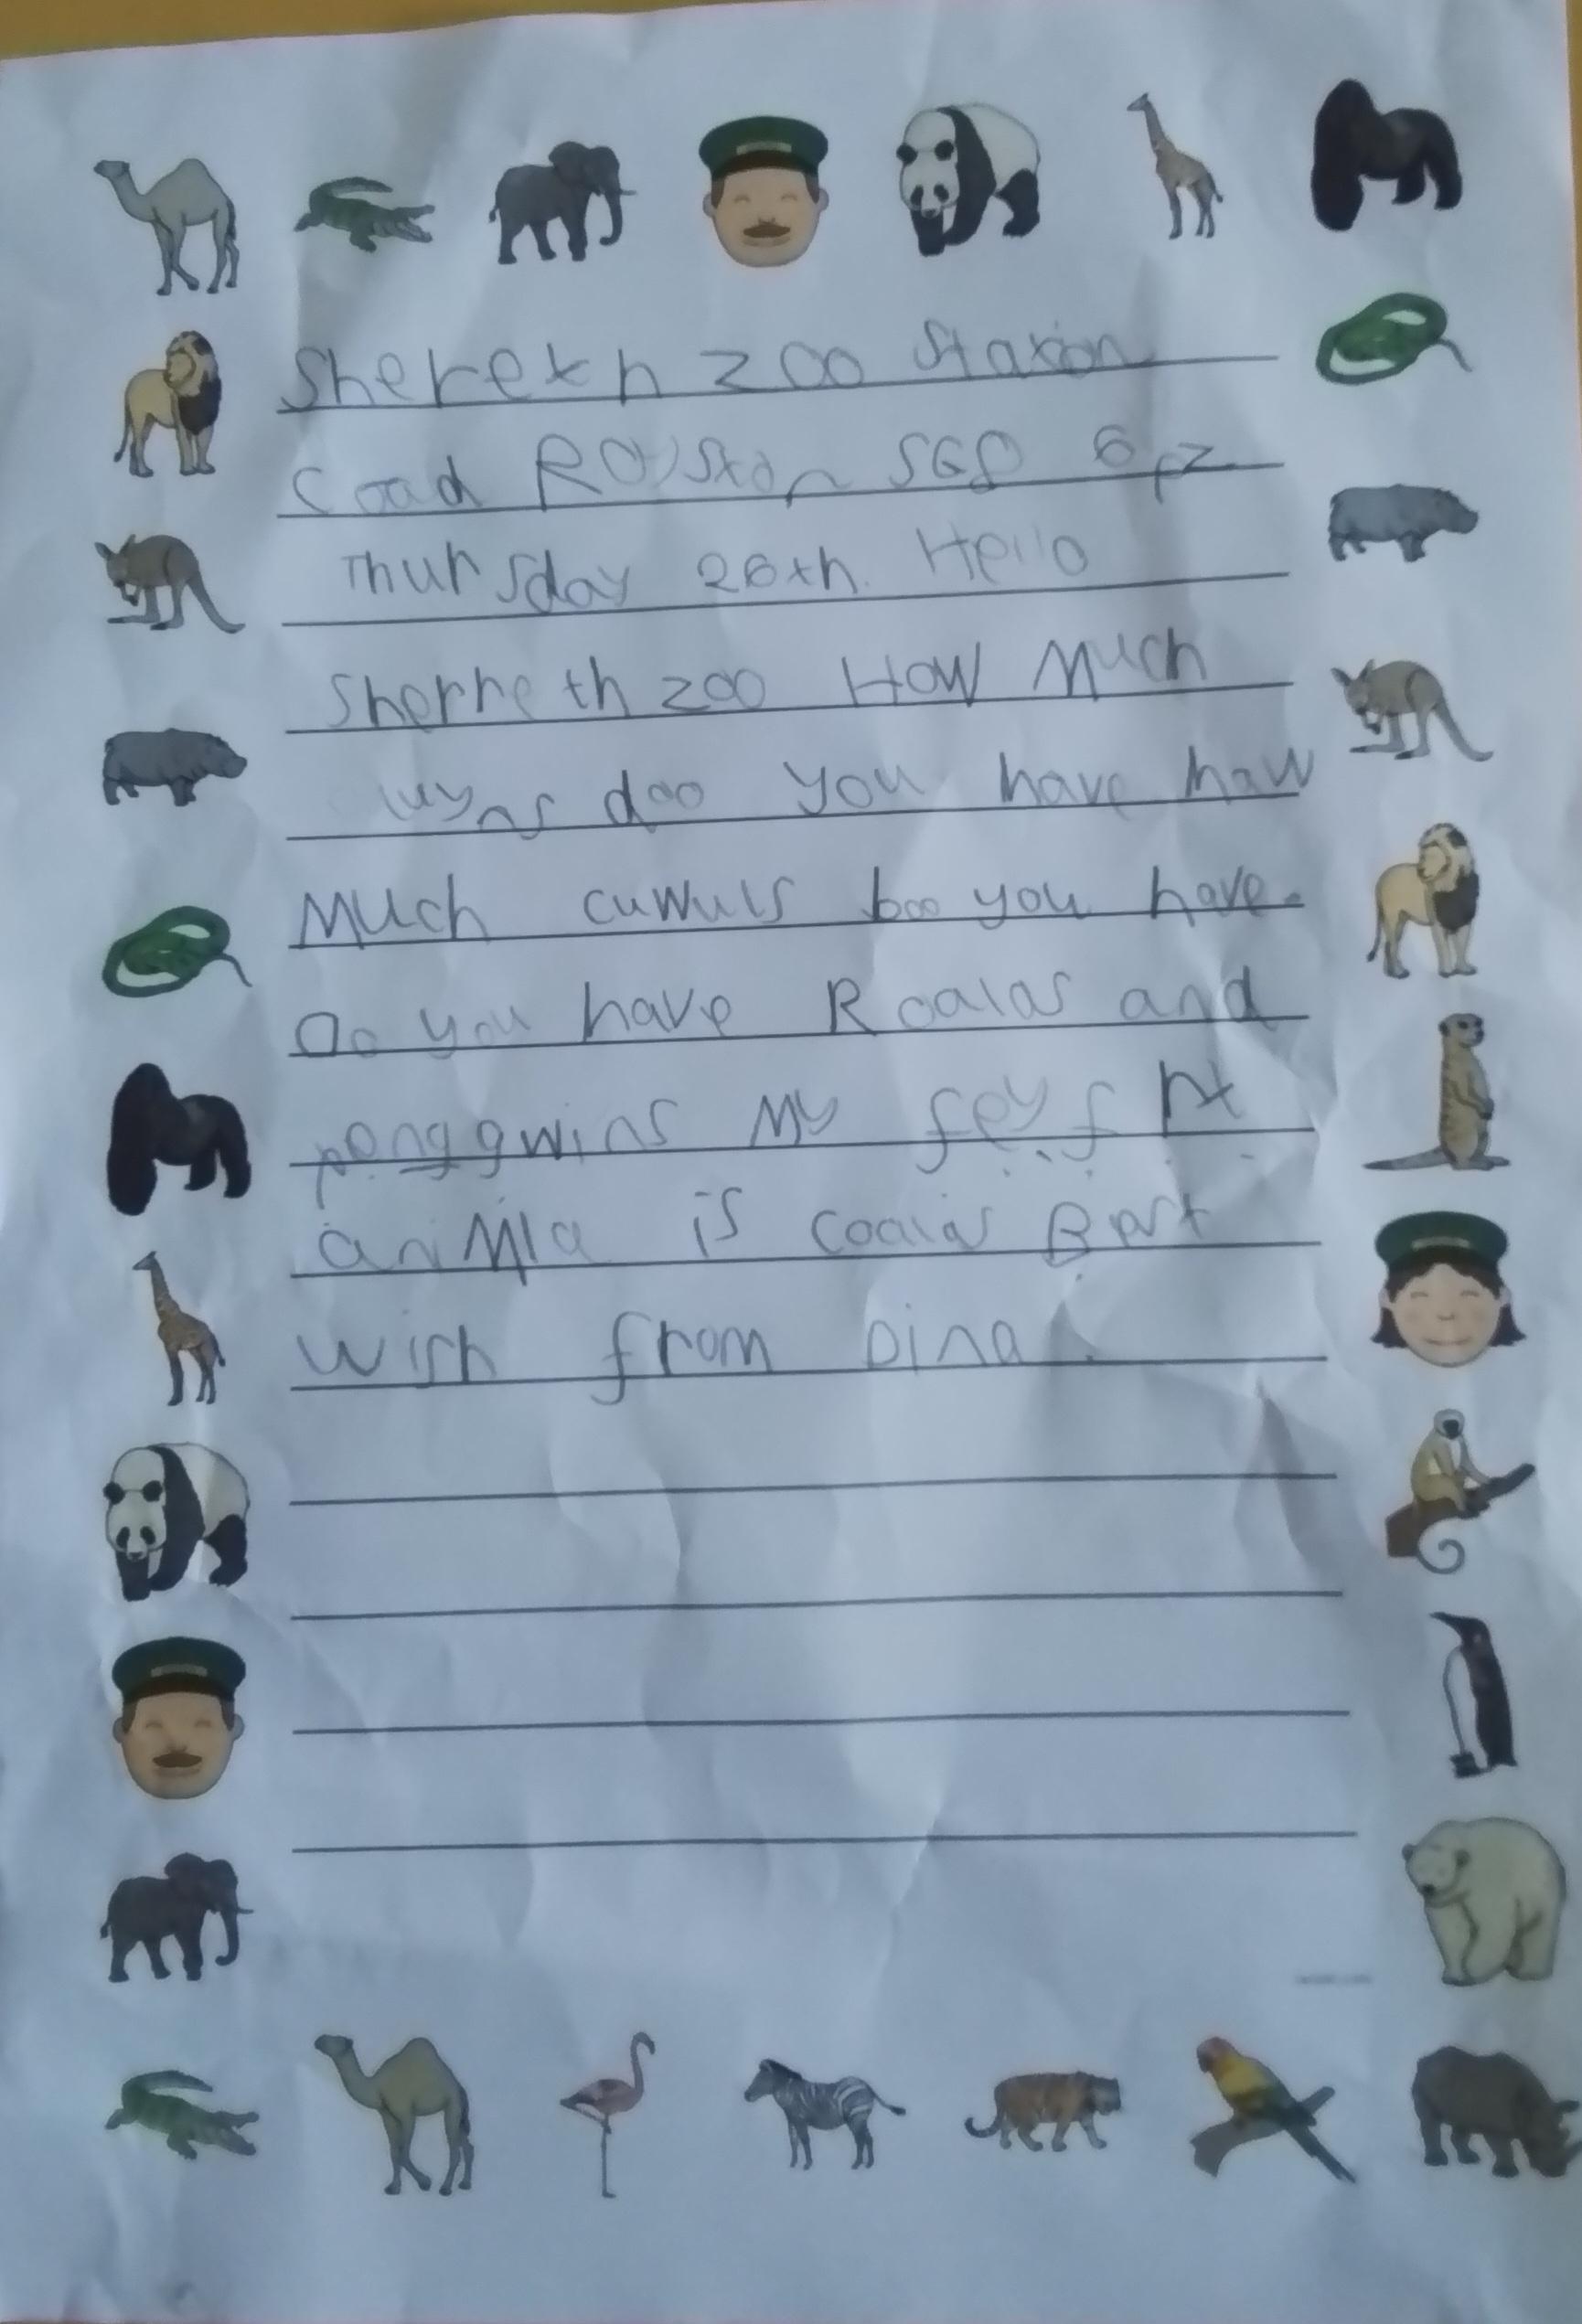 Sherexh zoo Staxion
Coad ROySxon SG8 6pz
Thursday 26xh. Hello
Sherreth zoo HOW Much
luyns doo you have haw
Much cuwuls boo you have.
Do you have Roalas and
penggwins My feyf
aniMla is coalas Bast
wish from Dina